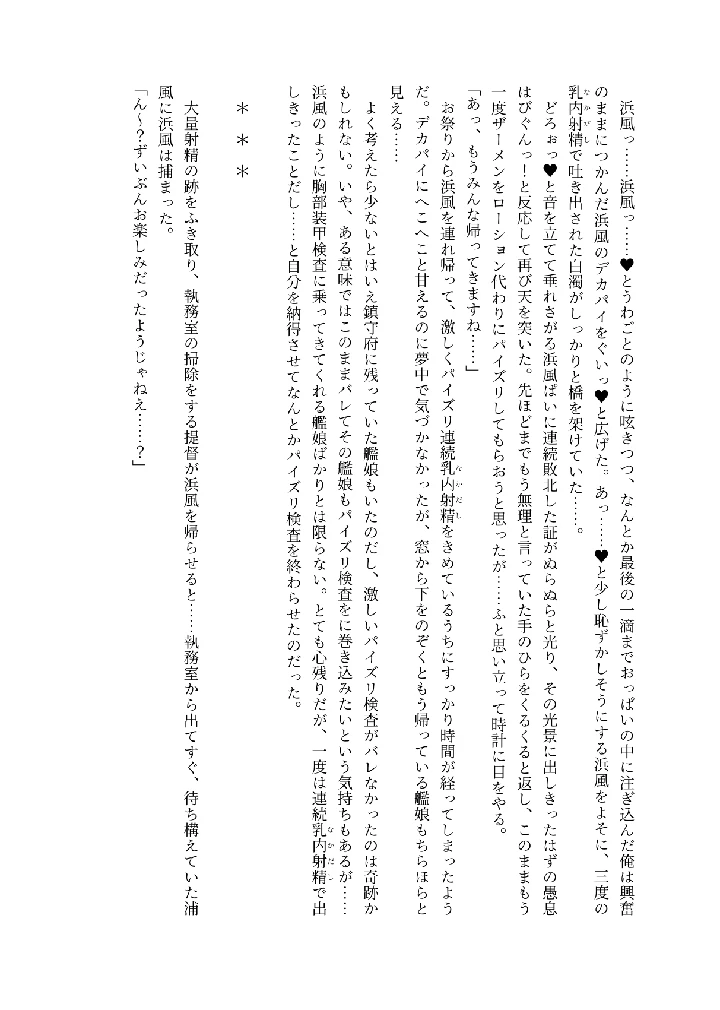 浜風っ……浜風っ……♥とうわごとのように呟きつつ、なんとか最後の一滴までおっぱいの中に注ぎ込んだ俺は興奮
のままにつかんだ浜風のデカパイをぐいっ♥と広げた。あっ……♥と少し恥ずかしそうにする浜風をよそに、三度の
乳内射精で吐き出された白濁がしっかりと橋を架けていた……。
　どろぉっ♥と音を立てて垂れさがる浜風ぱいに連続敗北した証がぬらぬらと光り、その光景に出しきったはずの愚息
はびぐんっ！と反応して再び天を突いた。先ほどまでもう無理と言っていた手のひらをくるくると返し、このままもう
一度ザーメンをローション代わりにパイズリしてもらおうと思ったが……ふと思い立って時計に目をやる。
「あっ、もうみんな帰ってきますね……」
　お祭りから浜風を連れ帰って、激しくパイズリ連続乳内射精をきめているうちにすっかり時間が経ってしまったよう
だ。デカパイにへこへこと甘えるのに夢中で気づかなかったが、窓から下をのぞくともう帰っている艦娘もちらほらと
見える……
　よく考えたら少ないとはいえ鎮守府に残っていた艦娘もいたのだし、激しいパイズリ検査がバレなかったのは奇跡か
もしれない。いや、ある意味ではこのままバレてその艦娘もパイズリ検査をに巻き込みたいという気持ちもあるが……
浜風のように胸部装甲検査に乗ってきてくれる艦娘ばかりとは限らない。とても心残りだが、一度は連続乳内射精で出
しきったことだし……と自分を納得させてなんとかパイズリ検査を終わらせたのだった。
＊　＊　＊
　大量射精の跡をふき取り、執務室の掃除をする提督が浜風を帰らせると……執務室から出てすぐ、待ち構えていた浦
風に浜風は捕まった。
「ん～？ずいぶんお楽しみだったようじゃねえ……？」